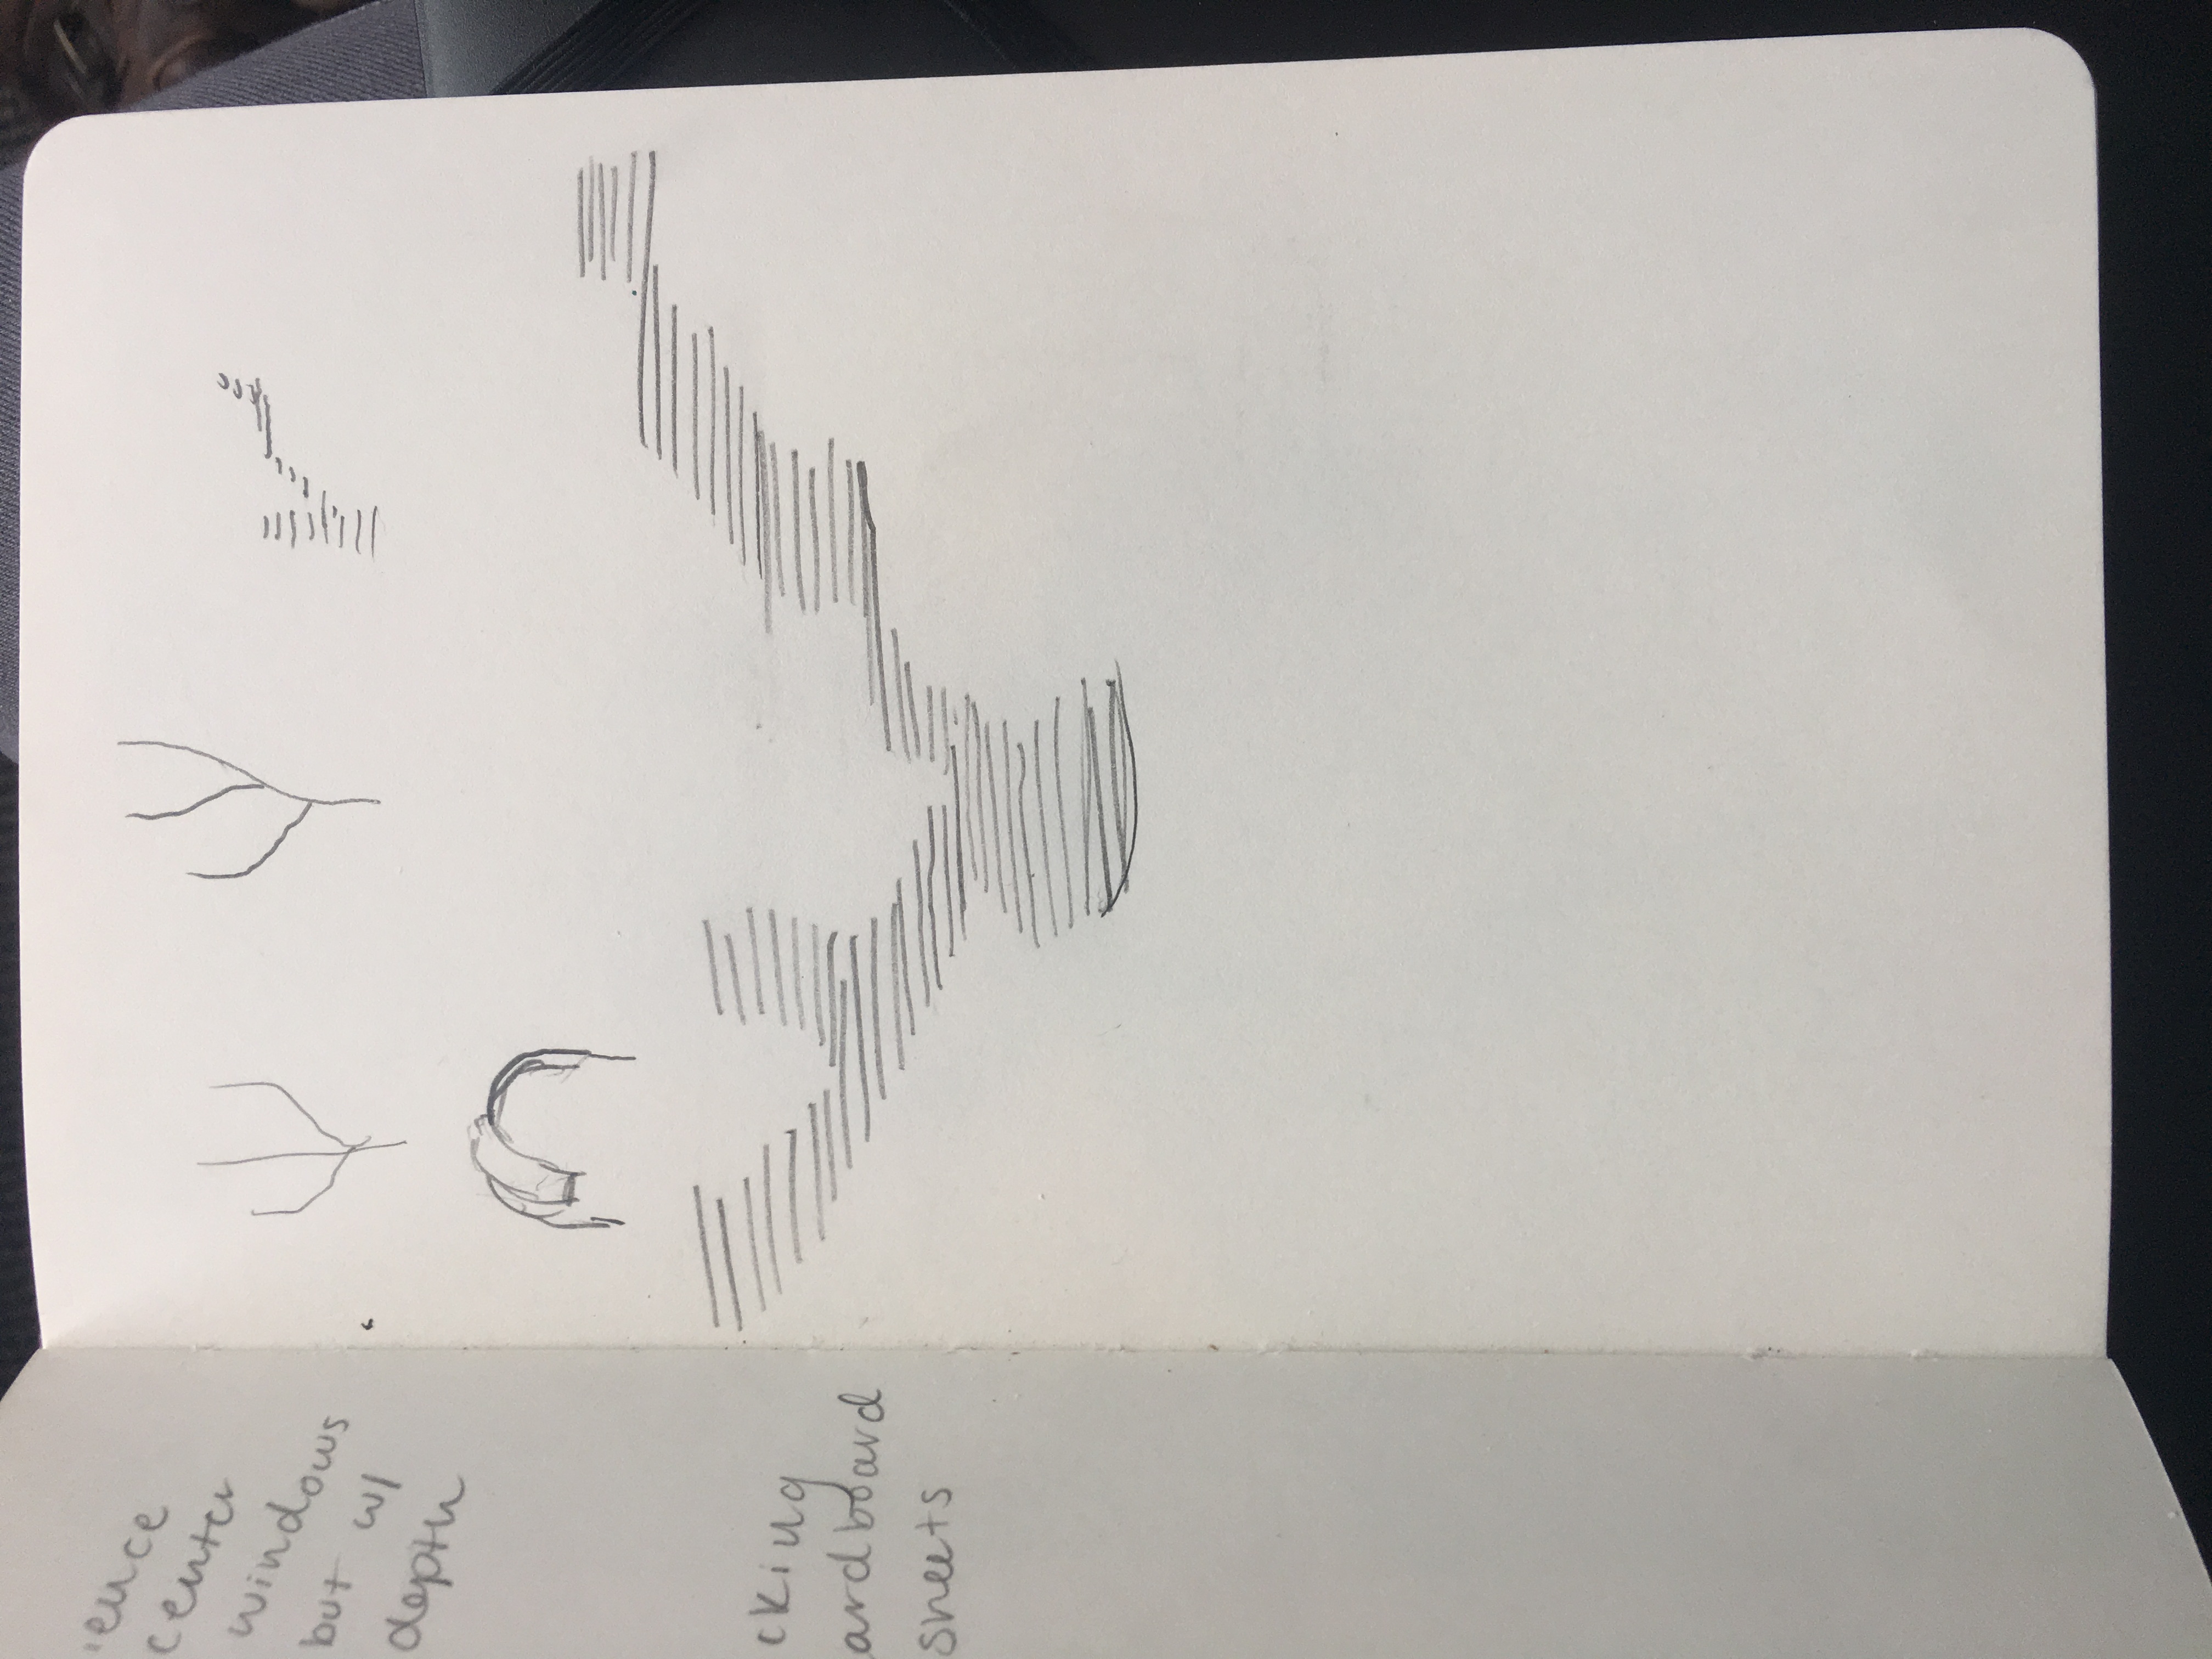 ience
center
windows
but w/
depth
cking
ardboard
sheets